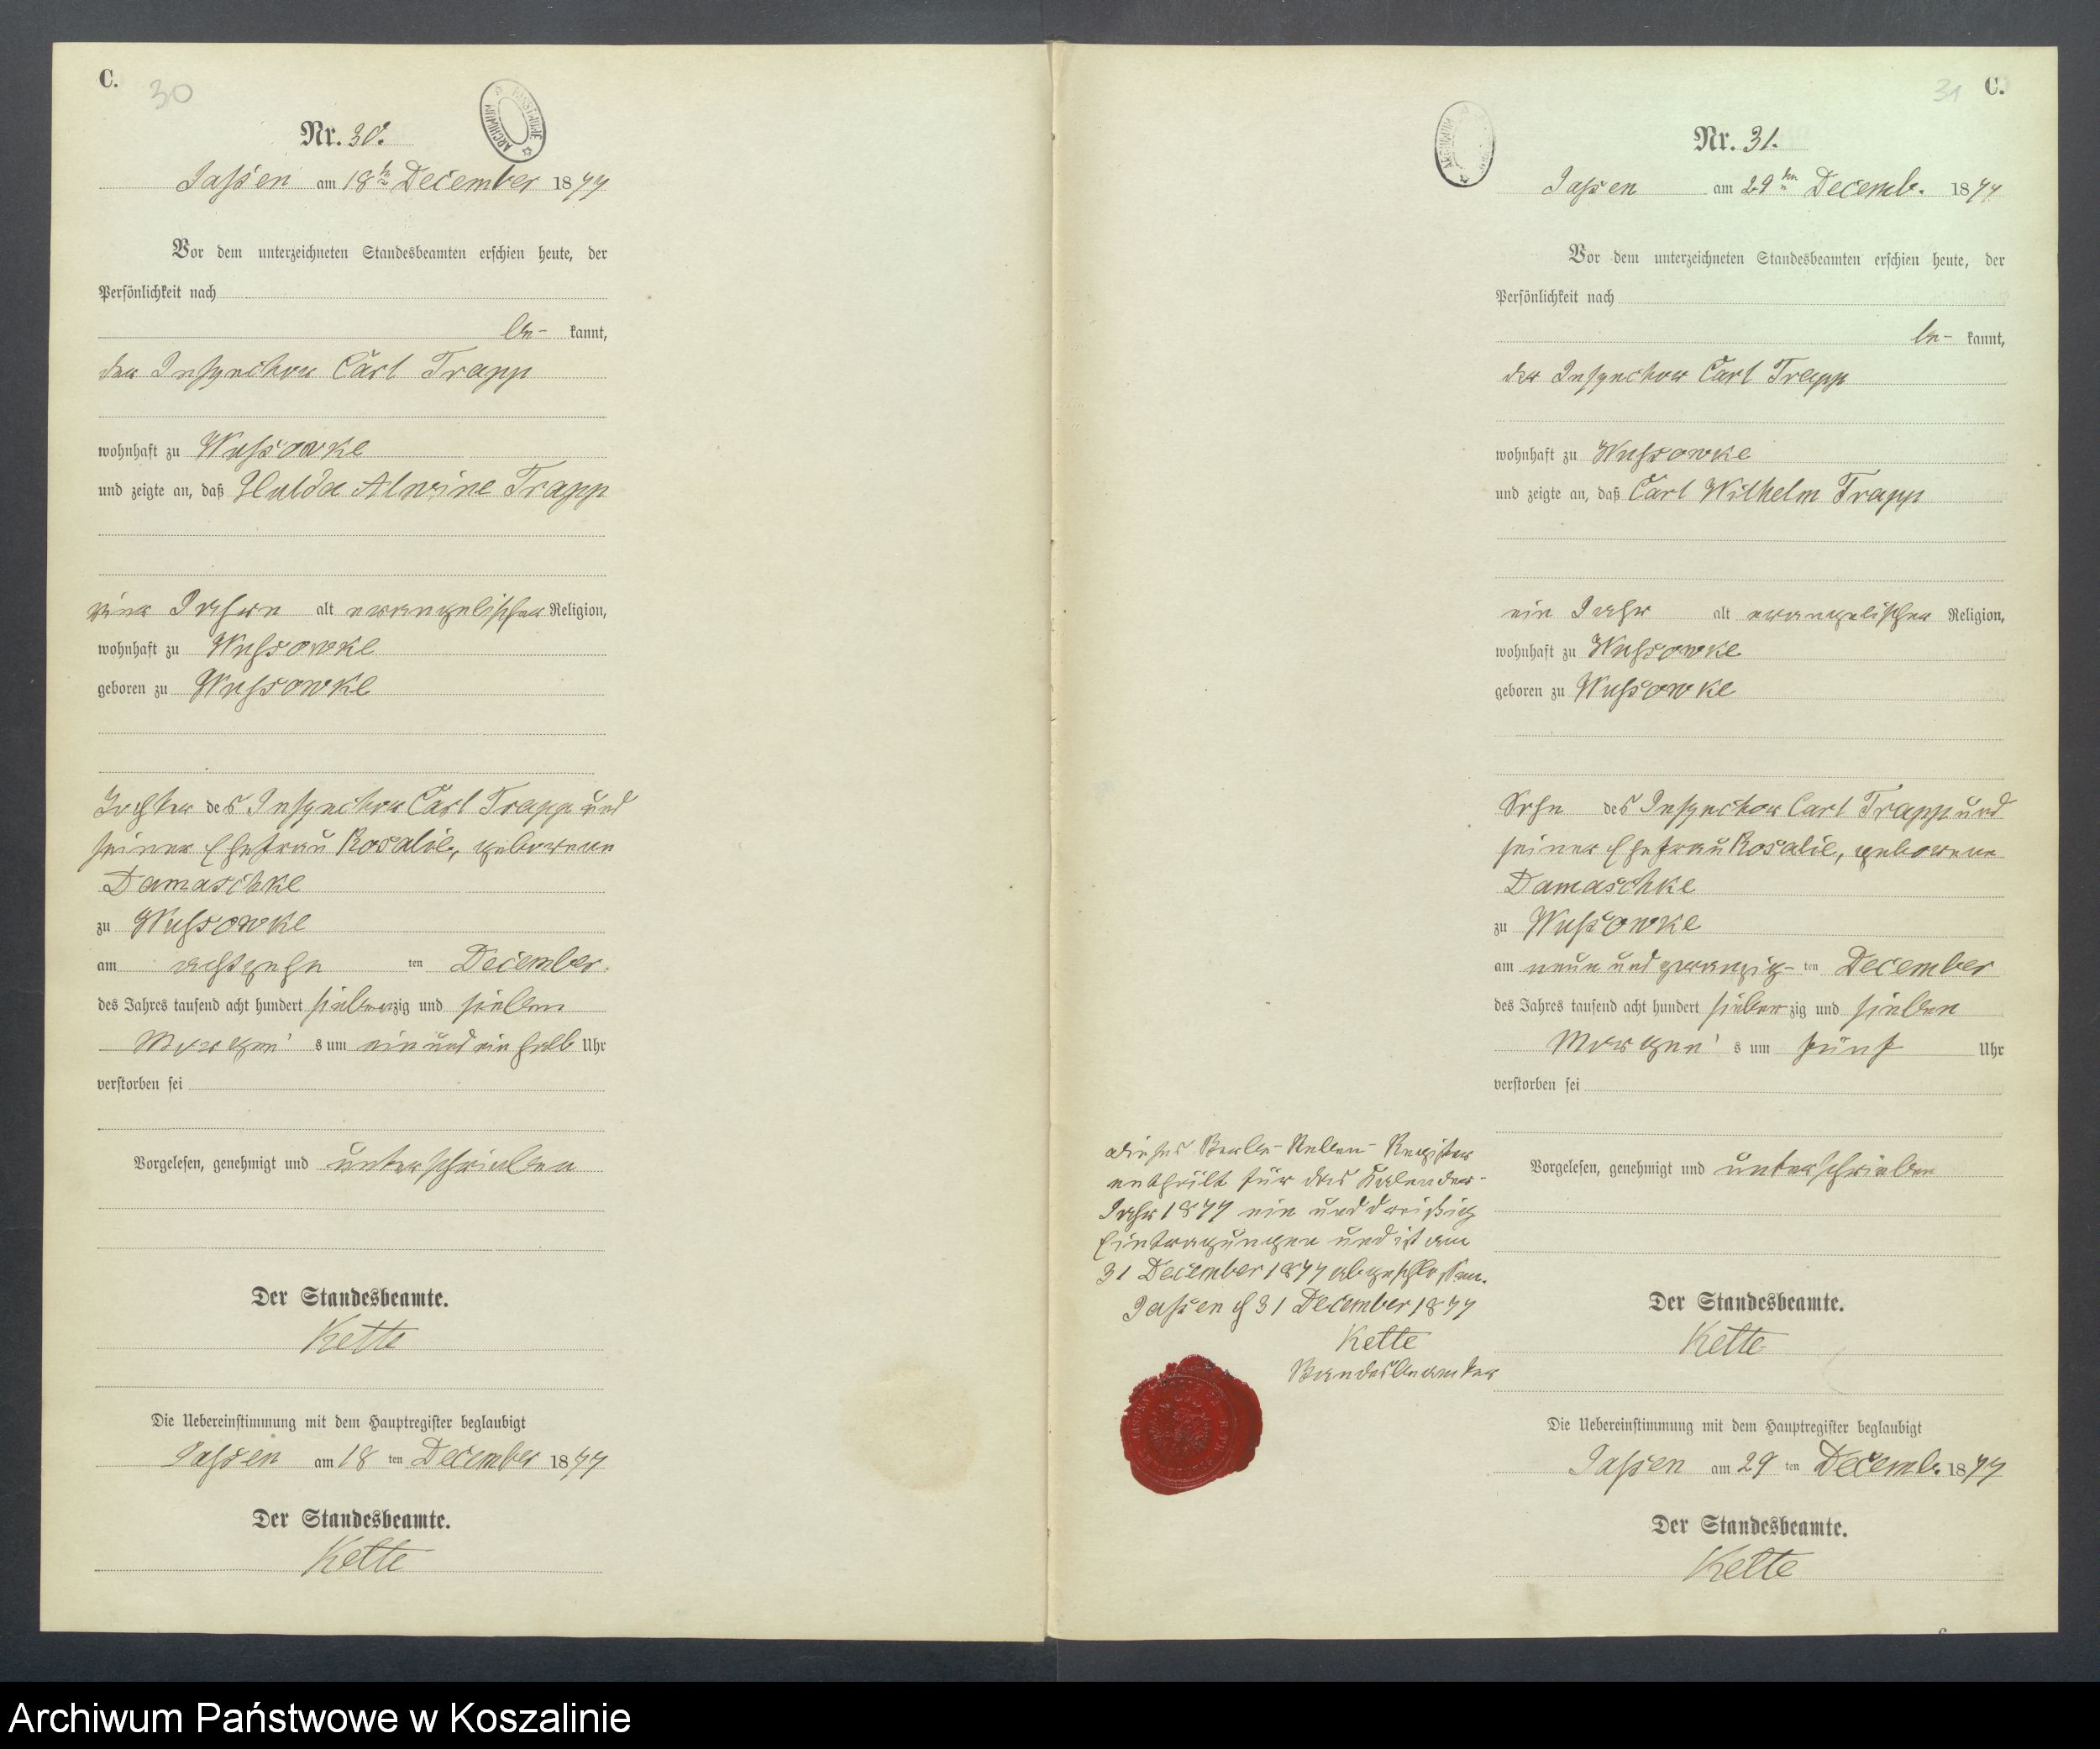 C.
30
Nr. 30.
Jassen am 18ten December 1877
Vor dem unterzeichneten Standesbeamten erschien heute, der
Persönlichkeit nach
be- kannt,
der Inspector Carl Trapp
wohnhaft zu Wussowke
und zeigte an, daß Hulda Alwine Trapp
vier Jahren alt evangelischer Religion,
wohnhaft zu Wussowke
geboren zu Wussowke
Tochter des Inspector Carl Trapp und
seiner Ehefrau Rosalie, geborene
Damaschke
zu Wussowke
am achtzehn ten December
des Jahres tausend acht hundert siebenzig und sieben
Morgen's um ein und ein halb Uhr
verstorben sei
Vorgelesen, genehmigt und unterschrieben
Der Standesbeamte.
Kette
Die Uebereinstimmung mit dem Hauptregister beglaubigt
Jassen am 18 ten December 1877
Der Standesbeamte.
Kette
31 C.
Nr. 31.
Jassen am 29ten Decemb. 1877
Vor dem unterzeichneten Standesbeamten erschien heute, der
Persönlichkeit nach
be- kannt,
der Inspector Carl Trapp
wohnhaft zu Wussowke
und zeigte an, daß Carl Wilhelm Trapp
ein Jahr alt evangelischer Religion,
wohnhaft zu Wussowke
geboren zu Wussowke
Sohn des Inspector Carl Trapp und
seiner Ehefrau Rosalie, geborene
Damaschke
zu Wussowke
am neun und zwanzig- ten December
des Jahres tausend acht hundert siebenzig und sieben
Morgen's um fünf Uhr
verstorben sei
Vorgelesen, genehmigt und unterschrieben
Der Standesbeamte.
Kette
Die Uebereinstimmung mit dem Hauptregister beglaubigt
Jassen am 29 ten Decemb. 1877
Der Standesbeamte.
Kette
Dieses Sterbe-Neben-Register
enthält für das Kalender-
Jahr 1877 ein und dreißig
Eintragungen und ist am
31 December 1877 abgeschlossen.
Jassen d 31 December 1877
Kette
Standesbeamter
ARCHIWUM PAŃSTWOWE
ARCHIWUM
Archiwum Państwowe w Koszalinie